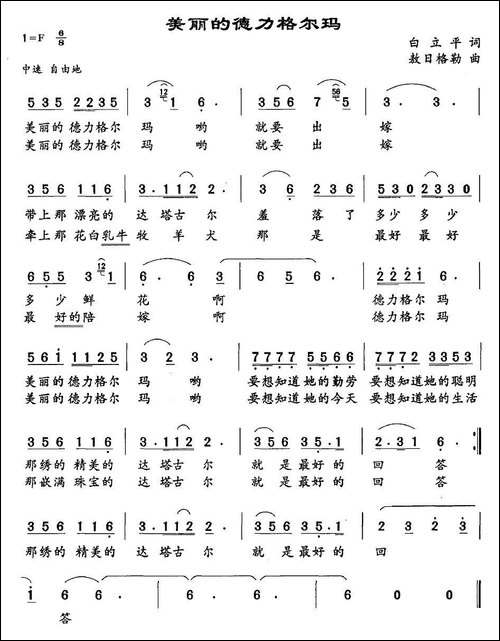 美丽的德力格尔玛
1=F 6/8
白立平 词
中速 自由地
敖日格勒 曲
535 2235 3·1 6· 356 7·5 3·
美丽的 德力格尔 玛 哟 就要 出 嫁
美丽的 德力格尔 玛 哟 就要 出 嫁
356 116 3·112 2· 3 6 356 530 2330
带上那 漂亮的 达 塔古 尔 羞 落 了 多少 多少
牵上那 花白乳牛 牧 羊 犬 那 是 最好 最好
356 3 1 6· 6 3 6 5 6 2221 6·
多 少 鲜 花 啊 德力格尔 玛
最 好的陪 嫁 啊 德力格尔 玛
561 1125 3 2 3· 7777 5566 7777 3353
美丽的 德力格尔 玛 哟 要想知道 她的勤劳 要想知道 她的聪明
美丽的 德力格尔 玛 哟 要想知道 她的今天 要想知道 她的生活
356 116 3·112 2· 356 35·1 2·31 6·
那绣的 精美的 达 塔古 尔 就 是 最好的 回 答
那嵌满 珠宝的 达 塔古 尔 就 是 最好的 回 答
356 116 3·112 2· 356 35·1 2 3 2 3
那绣的 精美的 达 塔古 尔 就 是 最好的 回
1 6 6· 6· 6· 6· 6· 6 0 0
答